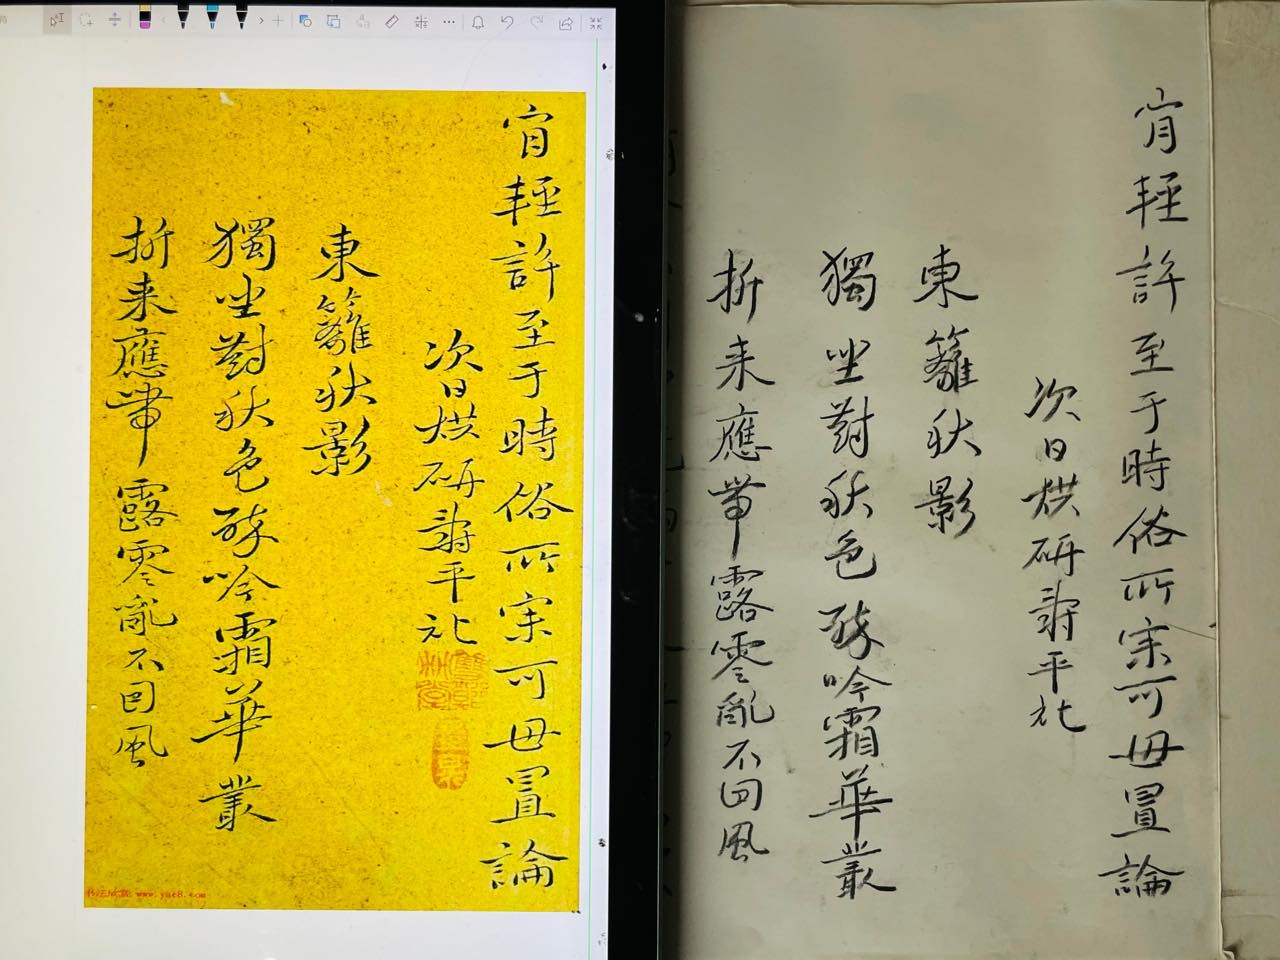 肎輊許至于時俗所宗可毋置論
次日烘研壽平記
東籬秋影
獨坐對秋色酔吟霜華叢
折来應帶露零亂不因風
书法欣赏 www.yac8.com
肎輊許至于時俗所宗可毋置論
次日烘研壽平記
東籬秋影
獨坐對秋色酔吟霜華叢
折来應帶露零亂不回風